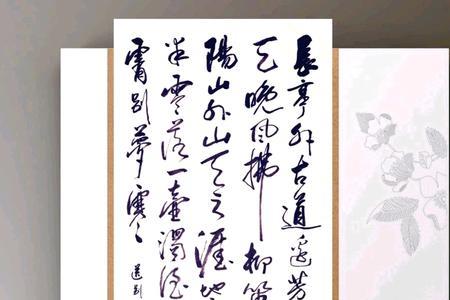 長亭外古道邊芳
天晚風拂柳笛
陽山外山天之涯地
半零落一壺濁酒
霄别夢寒
送别